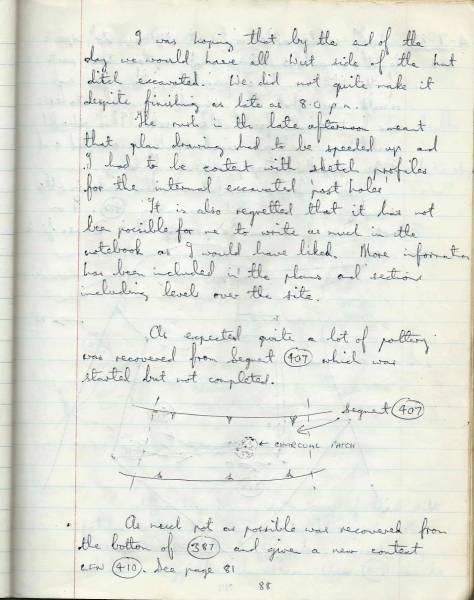 I was hoping that by the end of the
day we would have all West side of the hut
ditch excavated. We did not quite make it
despite finishing as late as 8.0 p.m.
The rush in the late afternoon meant
that plan drawing had to be speeded up and
I had to be content with sketch profiles
for the internal excavated post holes
It is also regretted that it has not
been possible for me to write as much in the
notebook as I would have liked. More information
has been included in the plans and section
including levels over the site.
As expected quite a lot of pottery
was recovered from Segment 407 which was
started but not completed.
Segment 407
CHARCOAL PATCH
As much pot as possible was recovered from
the bottom of 387 and given a new context
410. See page 81
88